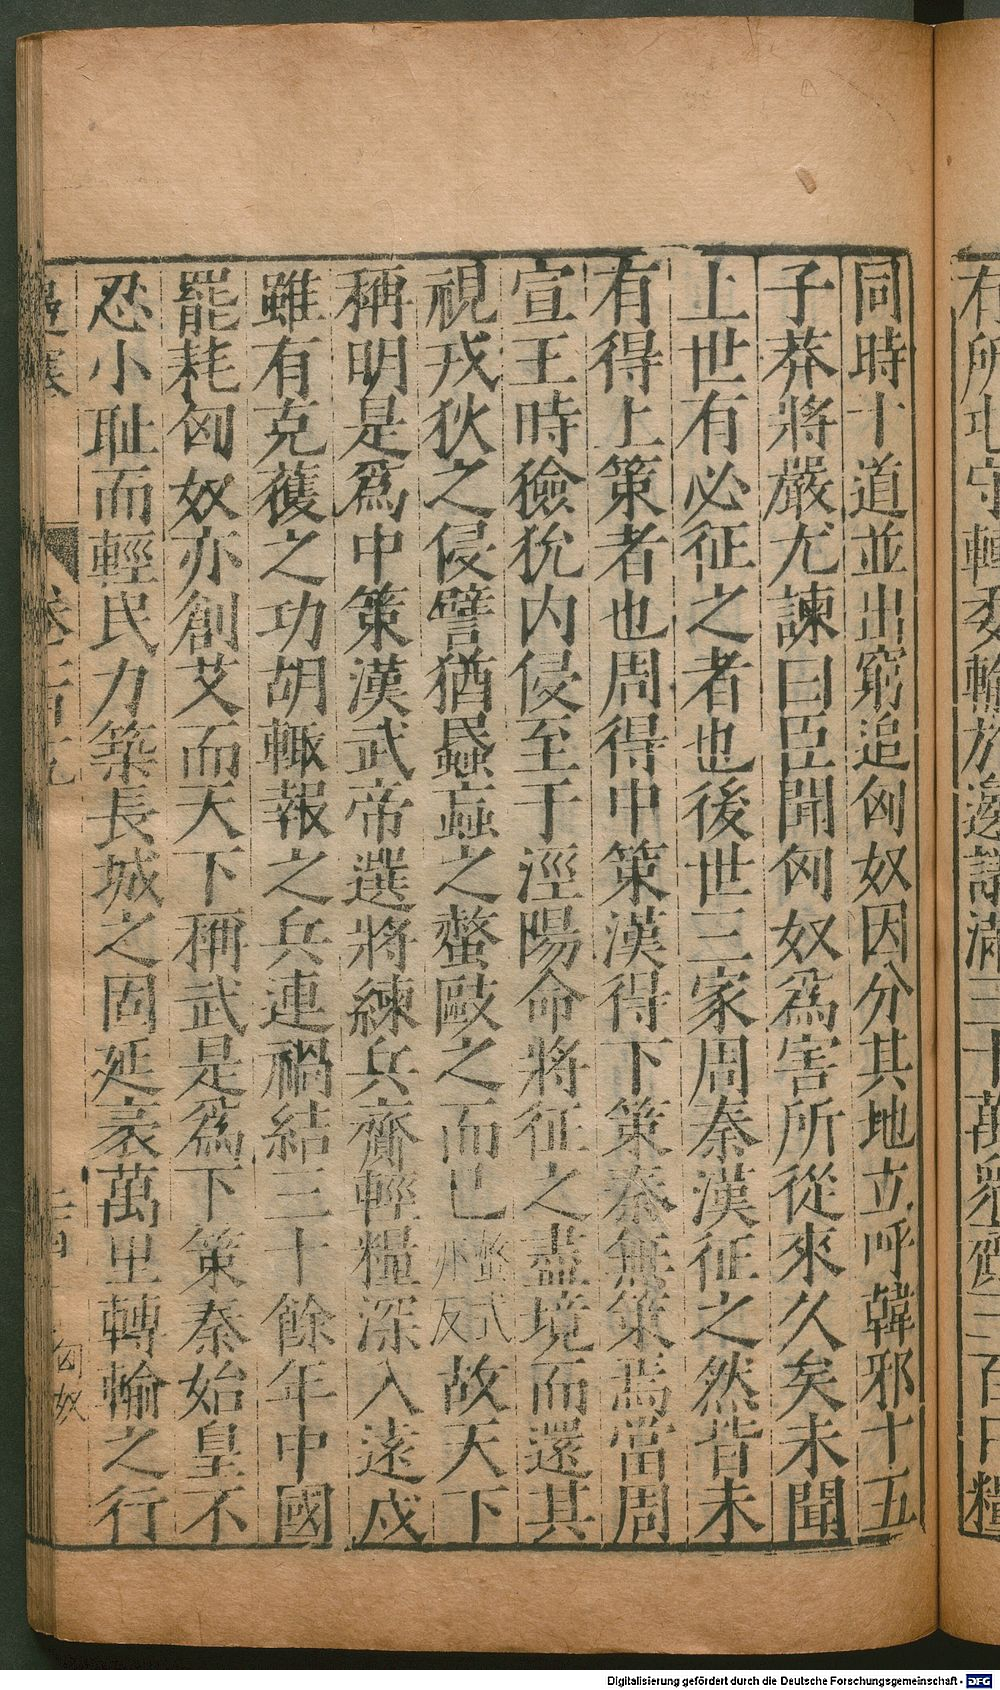 有所屯守轉委輸於邊議滿三十萬衆齎三百日糧
同時十道並出窮追匈奴因分其地立呼韓邪十五
子莽將嚴尤諫曰臣聞匈奴爲害所從來久矣未聞
上世有必征之者也後世三家周秦漢征之然皆未
有得上策者也周得中策漢得下策秦無策焉當周
宣王時獫狁内侵至于涇陽命將征之盡境而還其
視戎狄之侵譬猶蟁蝱之螫敺之而已螫式亦反故天下
稱明是爲中策漢武帝選將練兵齎輕糧深入遠戍
雖有克獲之功胡輒報之兵連禍結三十餘年中國
罷耗匈奴亦創艾而天下稱武是爲下策秦始皇不
忍小耻而輕民力築長城之固延袤萬里轉輸之行
邊塞
匈奴
Digitalisierung gefördert durch die Deutsche Forschungsgemeinschaft - DFG